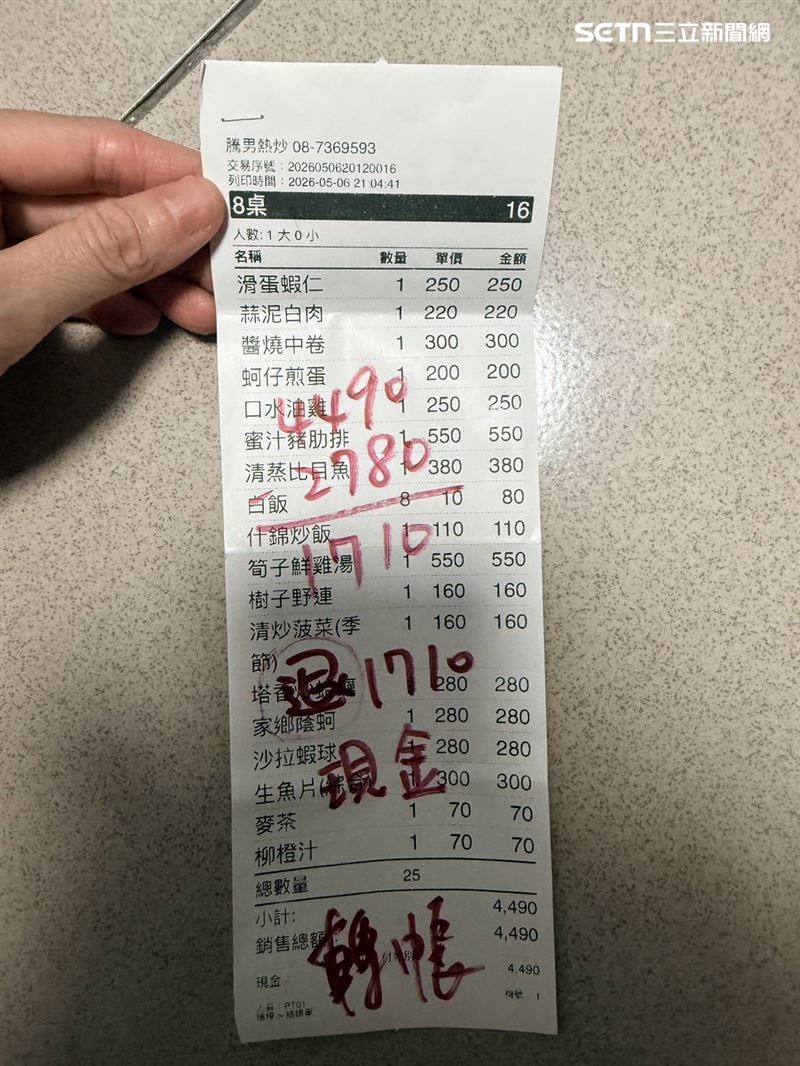 SETN三立新聞網
騰男熱炒 08-7369593
交易序號：2026050620120016
列印時間：2026-05-06 21:04:41
8桌 16
人數: 1 大 0 小
名稱 數量 單價 金額
滑蛋蝦仁 1 250 250
蒜泥白肉 1 220 220
醬燒中卷 1 300 300
蚵仔煎蛋 1 200 200
口水油雞 1 250 250
4490
蜜汁豬肋排 1 550 550
清蒸比目魚 1 380 380
- 2780
白飯 8 10 80
什錦炒飯 1 110 110
1710
筍子鮮雞湯 1 550 550
樹子野連 1 160 160
清炒菠菜(季 1 160 160
節)
退1710
塔香 280 280
家鄉陰蚵 1 280 280
沙拉蝦球 1 280 280
現金
生魚片(綜合) 300 300
麥茶 1 70 70
柳橙汁 1 70 70
總數量 25
小計: 4,490
銷售總額: 4,490
轉帳
現金： 4,490
機號 1